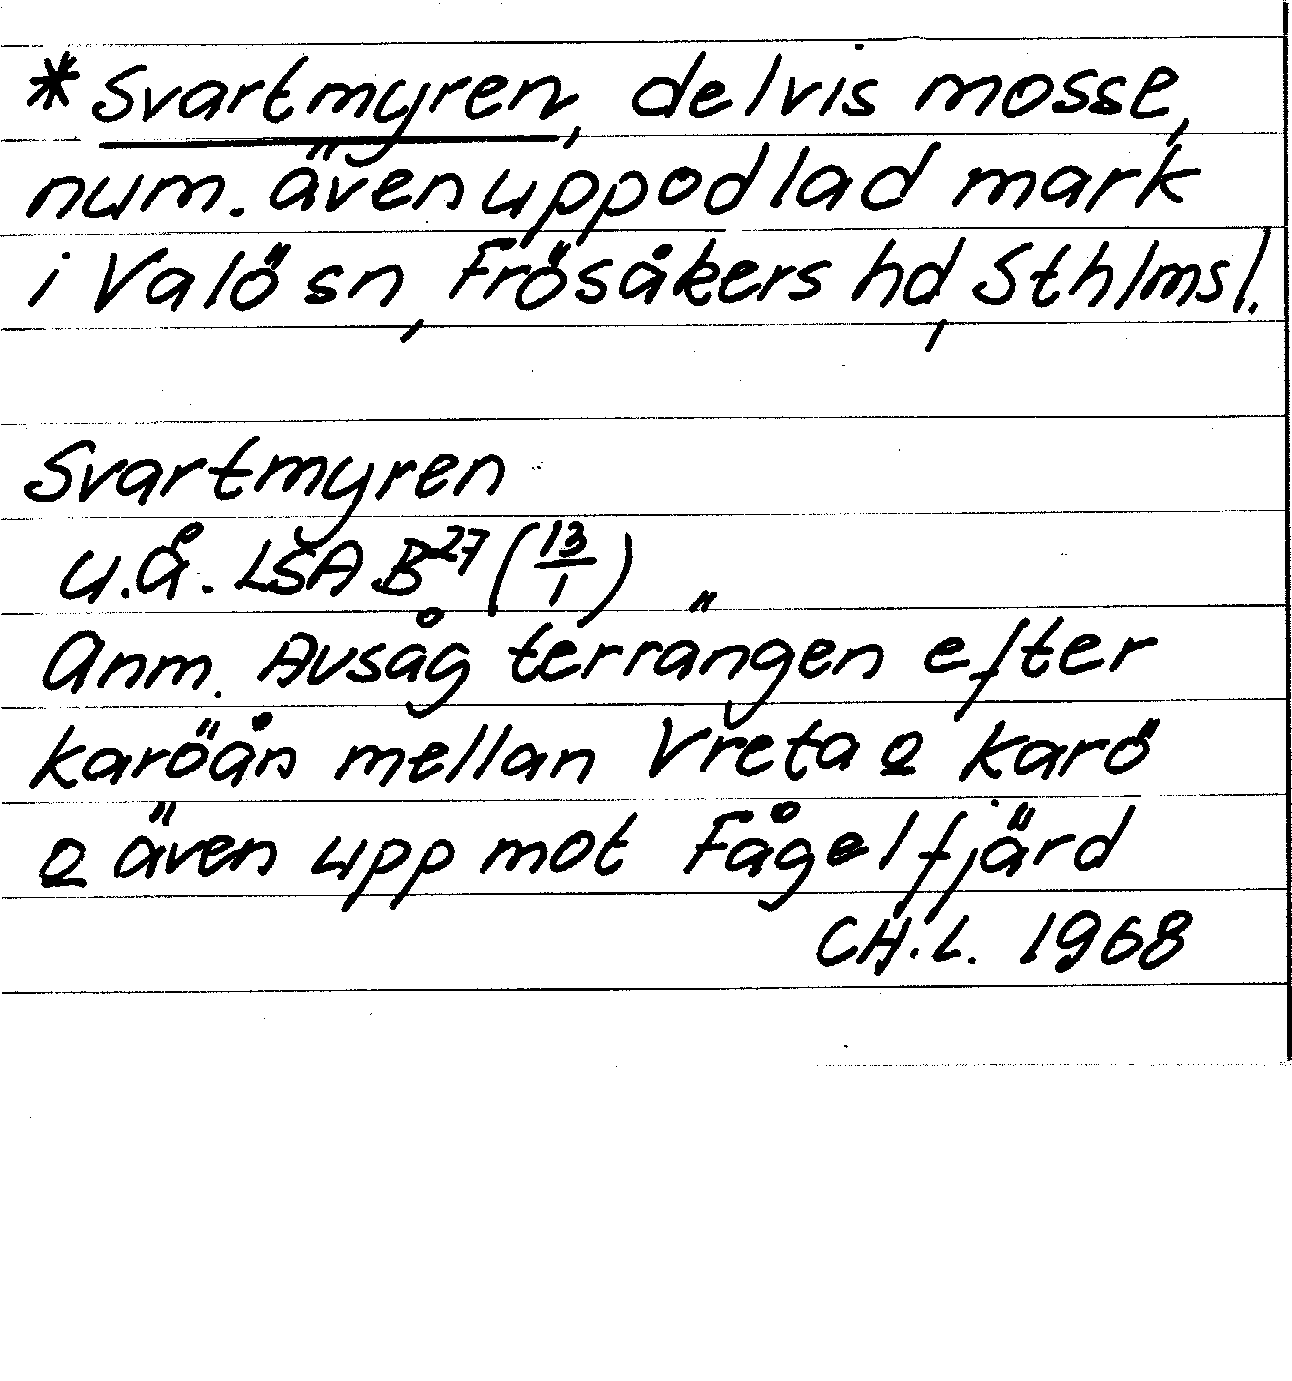 * Svartmyren, delvis mosse,
num. även uppodlad mark
i Valö sn, Frösåkers hd, Sthlmsl.
Svartmyren
u.å. LSA B27 (13/1)
Anm. Avsåg terrängen efter
karöån mellan Vreta & Karö
& även upp mot Fågelfjärd
CH.L. 1968